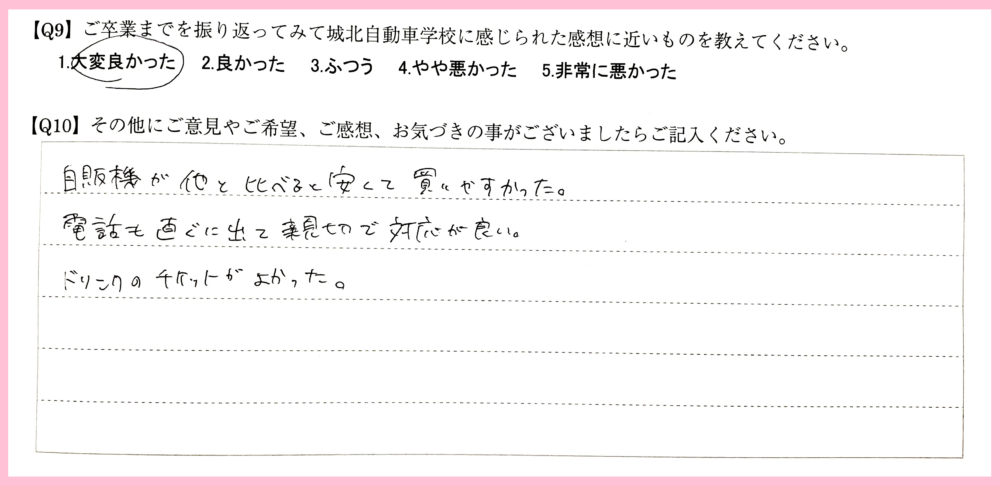 【Q9】ご卒業までを振り返ってみて城北自動車学校に感じられた感想に近いものを教えてください。
1.大変良かった 2.良かった 3.ふつう 4.やや悪かった 5.非常に悪かった
【Q10】その他にご意見やご希望、ご感想、お気づきの事がございましたらご記入ください。
自販機が他と比べると安くて買いやすかった。
電話も直ぐに出て親切で対応が良い。
ドリンクのチケットがよかった。